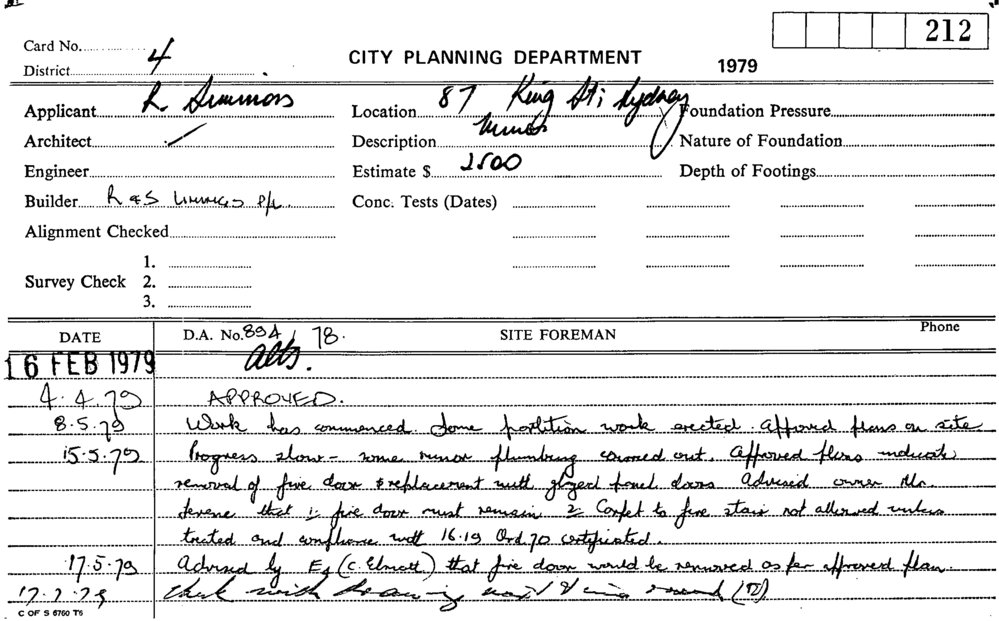 212
Card No.
District 4
CITY PLANNING DEPARTMENT
1979
Applicant R. Simmons
Location 87 King St; Sydney
Foundation Pressure
Architect
Description
Nature of Foundation
Engineer
Estimate $ 2500
Depth of Footings
Builder R & S P/L
Conc. Tests (Dates)
Alignment Checked
Survey Check 1.
2.
3.
DATE D.A. No. 894/78. SITE FOREMAN Phone
16 FEB 1979 alts.
4.4.79 APPROVED.
8.5.79 Work has commenced. Some partition work erected. Approved plans on site
15.5.79 Progress slow - some minor plumbing carried out. Approved plans indicate
removal of fire door & replacement with glazed panel doors. Advised owner Mr.
that 1:- fire door must remain 2:- Carpet to fire stair not allowed unless
treated and compliance with 16.19 Ord. 70 certificated.
17.5.79 Advised by (C. Elmott) that fire door would be removed as per approved plan.
check with
C OF S 6760 T6